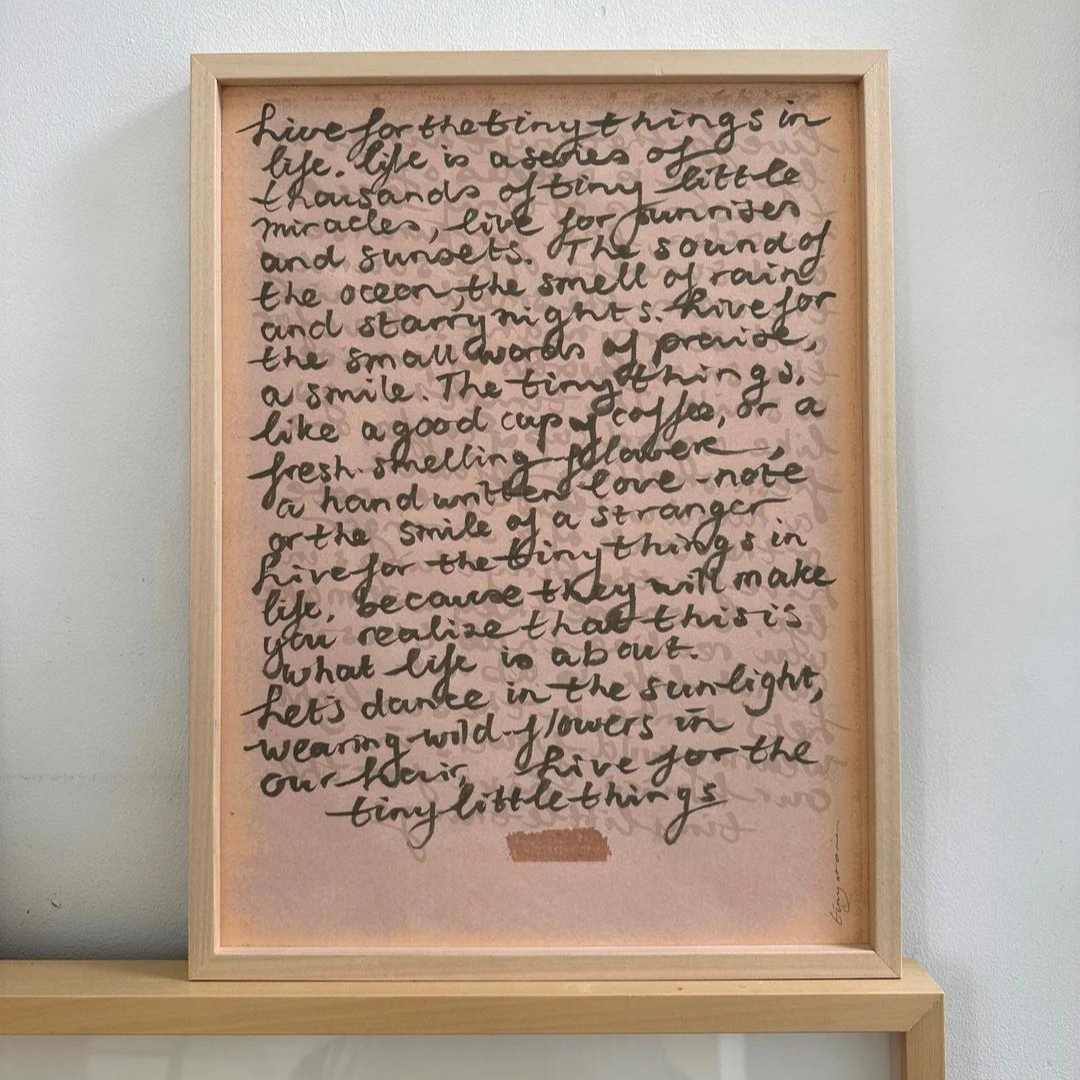 Live for the tiny things in
life. life is a series of
thousands of tiny little
miracles, live for sunrises
and sunsets. The sound of
the ocean, the smell of rain
and starry nights. Live for
the small words of praise,
a smile. The tiny things,
like a good cup of coffee, or a
fresh smelling flower,
a hand written love-note
or the smile of a stranger
Live for the tiny things in
life, because they will make
you realize that this is
what life is about.
Let's dance in the sunlight,
wearing wild flowers in
our hair, Live for the
tiny little things